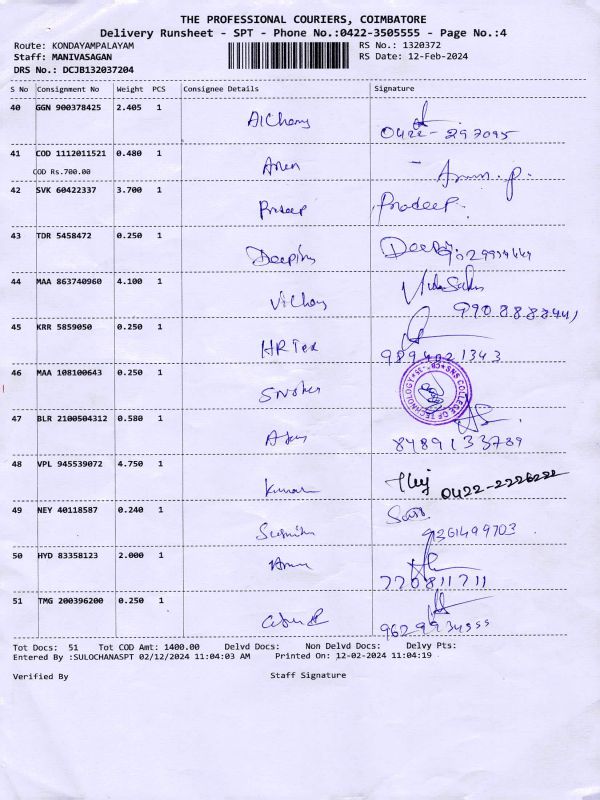 THE PROFESSIONAL COURIERS, COIMBATORE
Delivery Runsheet - SPT - Phone No.:0422-3505555 - Page No.:4
Route: KONDAYAMPALAYAM RS No.: 1320372
Staff: MANIVASAGAN RS Date: 12-Feb-2024
DRS No.: DCJB132037204
S No Consignment No Weight PCS Consignee Details Signature
40 GGN 900378425 2.405 1
0422-297095
41 COD 1112011521 0.480 1 Arun
COD Rs.700.00 Arun.p.
42 SVK 60422337 3.700 1 Pradeep Pradeep.
43 TDR 5458472 0.250 1
44 MAA 863740960 4.100 1
45 KRR 5859050 0.250 1 HR Tex
9894021343
46 MAA 108100643 0.250 1
SNS COLLEGE OF TECHNOLOGY
47 BLR 2100504312 0.580 1
8489133789
48 VPL 945539072 4.750 1 Kumar
0422-2226222
49 NEY 40118587 0.240 1
9361499703
50 HYD 83358123 2.000 1 Arun
770811711
51 TMG 200396200 0.250 1
9629934555
Tot Docs: 51 Tot COD Amt: 1400.00 Delvd Docs: Non Delvd Docs: Delvy Pts:
Entered By :SULOCHANASPT 02/12/2024 11:04:03 AM Printed On: 12-02-2024 11:04:19
Verified By Staff Signature